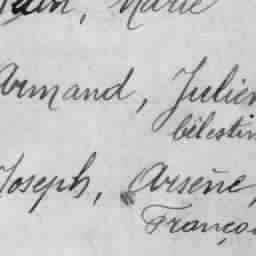 Marie
Armand, Julien
Célestin
Joseph, Arsène,
Franço